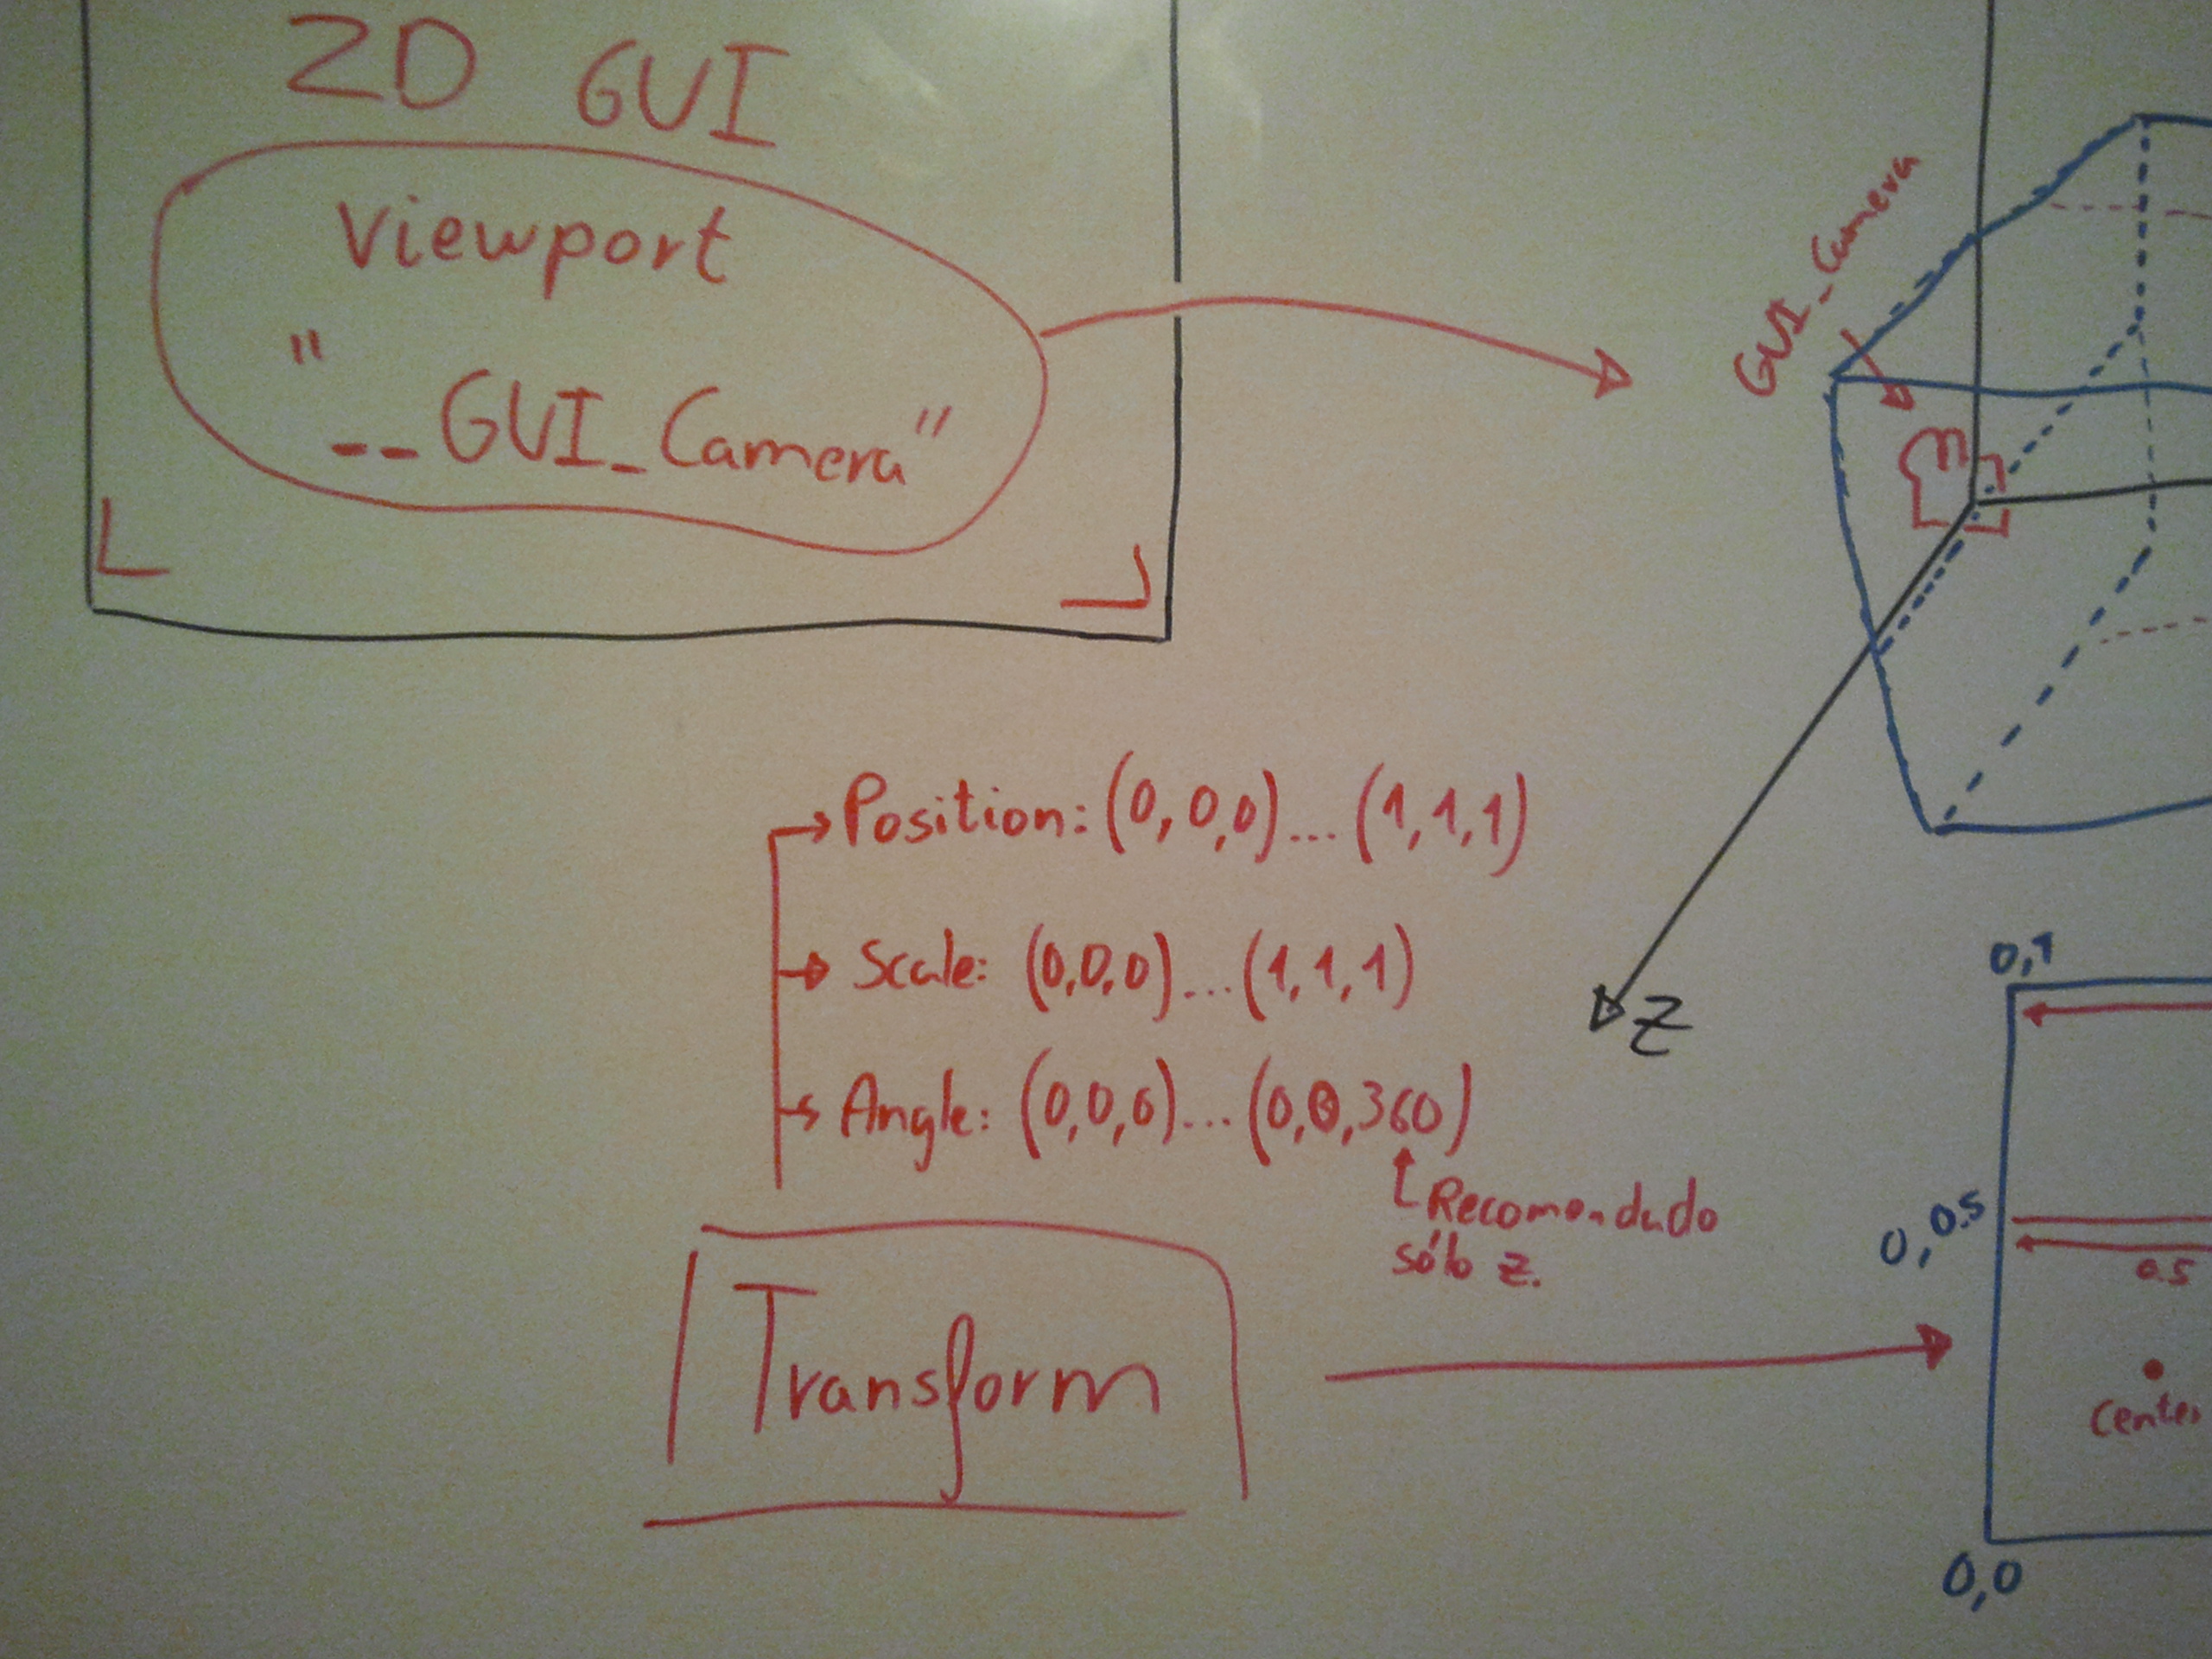 2D GUI
Viewport
"
__GUI_Camera"
GUI_Camera
Position: (0,0,0)...(1,1,1)
Scale: (0,0,0)...(1,1,1)
Angle: (0,0,0)...(0,0,360)
Recomendado
sólo z.
Z
Transform
0,1
0,0.5
0.5
Center
0,0